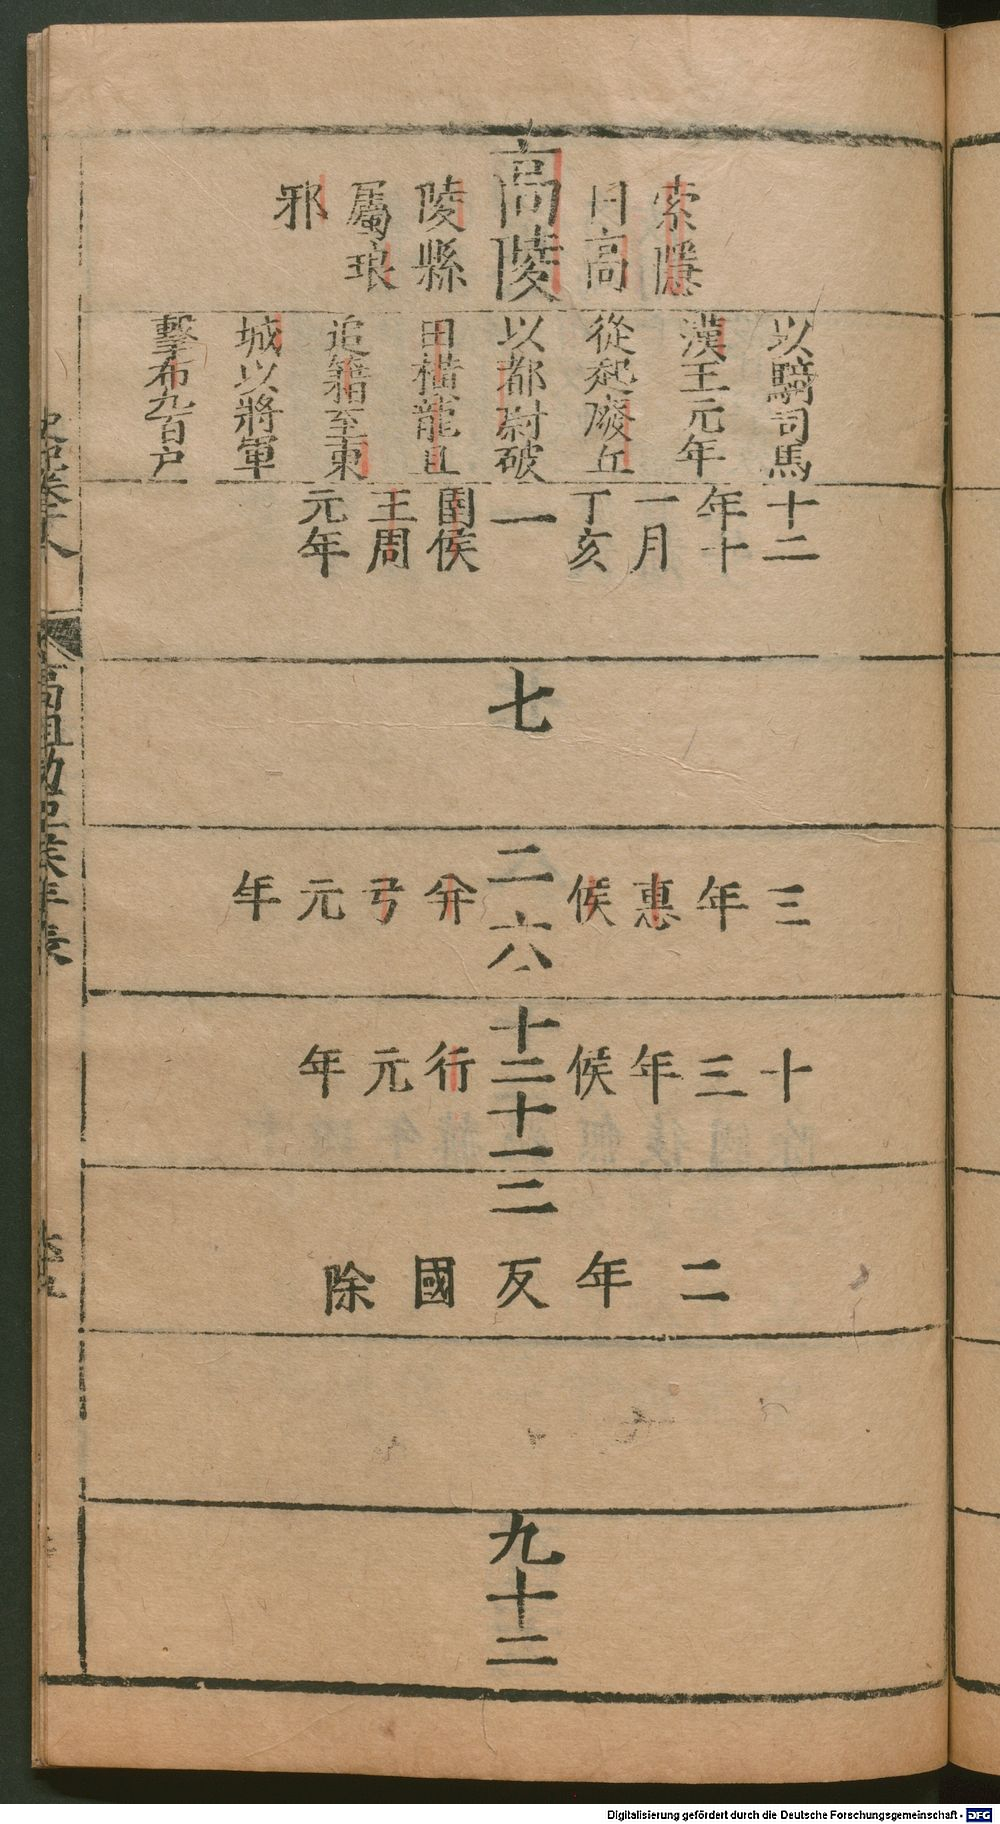 高陵
索隱
曰高
陵縣
屬琅
邪
以騎司馬
漢王元年
從起廢丘
以都尉破
田橫龍且
追籍至東
城以將軍
擊布九百戶
十二
年十
一月
丁亥
一
圉侯
王周
元年
七
二六
三年惠侯
并弓元年
十二十一
十三年侯
行元年
二
二年反國除
九十二
史記卷十八
高祖功臣侯年表
Digitalisierung gefördert durch die Deutsche Forschungsgemeinschaft - DFG